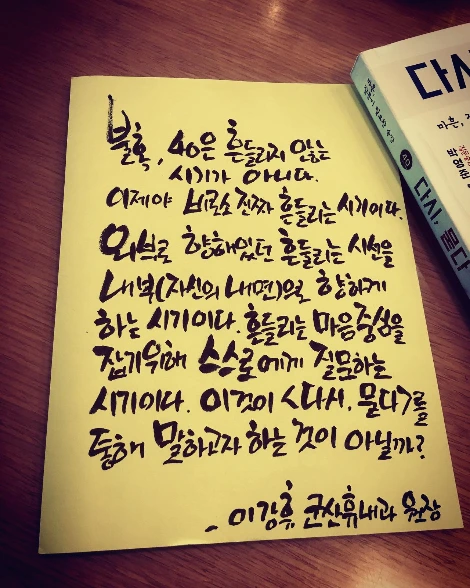 불혹, 40은 흔들리지 않는
시기가 아니다.
이제야 비로소 진짜 흔들리는 시기이다.
외부로 향해있던 흔들리는 시선을
내부(자신의 내면)으로 향하게
하는 시기이다. 흔들리는 마음중심을
잡기위해 스스로에게 질문하는
시기이다. 이것이 <다시, 묻다>를
통해 말하고자 하는 것이 아닐까?
- 이강휴 군산휴내과 원장
다시
마흔,
박영준
다시, 묻다